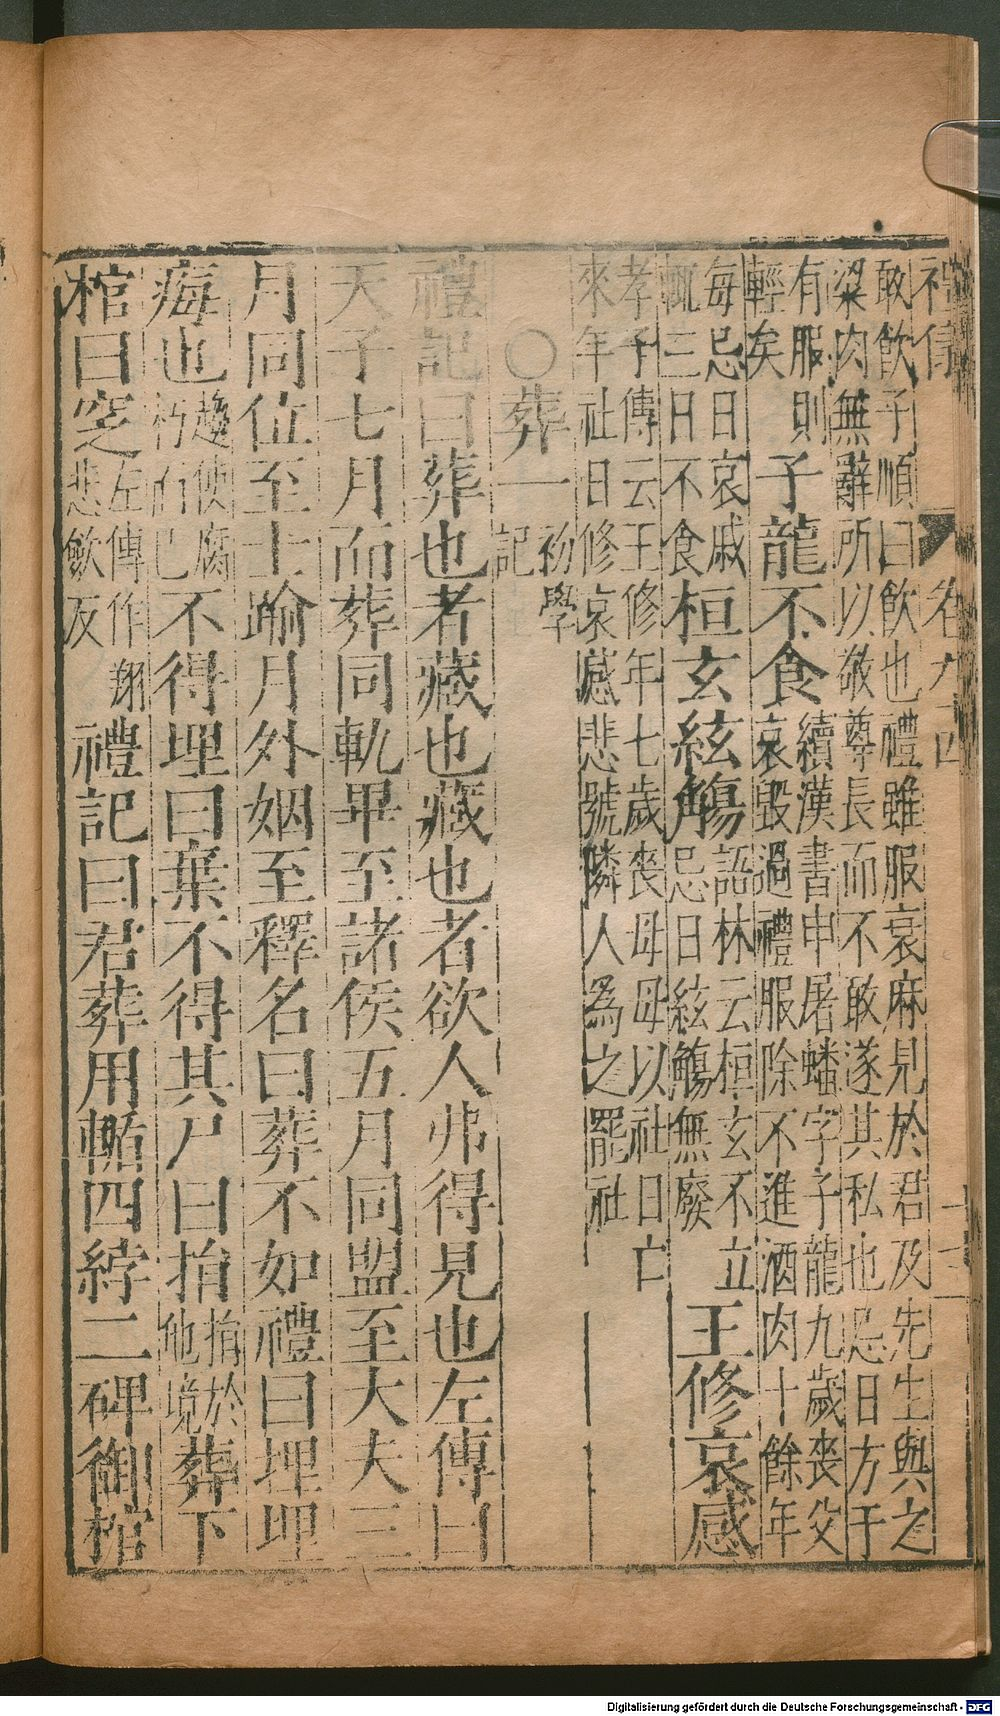 卷九十四
十三
敢飲子順曰飲也禮雖服衰麻見於君及先生與之
粱肉無辭所以敬尊長而不敢遂其私也忌日方于
有服則
輕矣
子龍不食
續漢書申屠蟠字子龍九歲喪父
哀毀過禮服除不進酒肉十餘年
每忌日哀戚
輒三日不食
桓玄絃觴
語林云桓玄不立
忌日絃觴無廢
王修哀感
孝子傳云王修年七歲喪母母以社日亡
來年社日修哀感悲號隣人為之罷社
○葬一
初學
記
禮記曰葬也者藏也藏也者欲人弗得見也左傳曰
天子七月而葬同軌畢至諸侯五月同盟至大夫三
月同位至士踰月外姻至釋名曰葬不如禮曰埋埋
痗也
趨使腐
朽而已
不得埋曰棄不得其尸曰捐
捐於
他境
葬下
棺曰窆
左傳作堋
悲歛反
禮記曰君葬用輴四綍二碑御棺
Digitalisierung gefördert durch die Deutsche Forschungsgemeinschaft - DFG